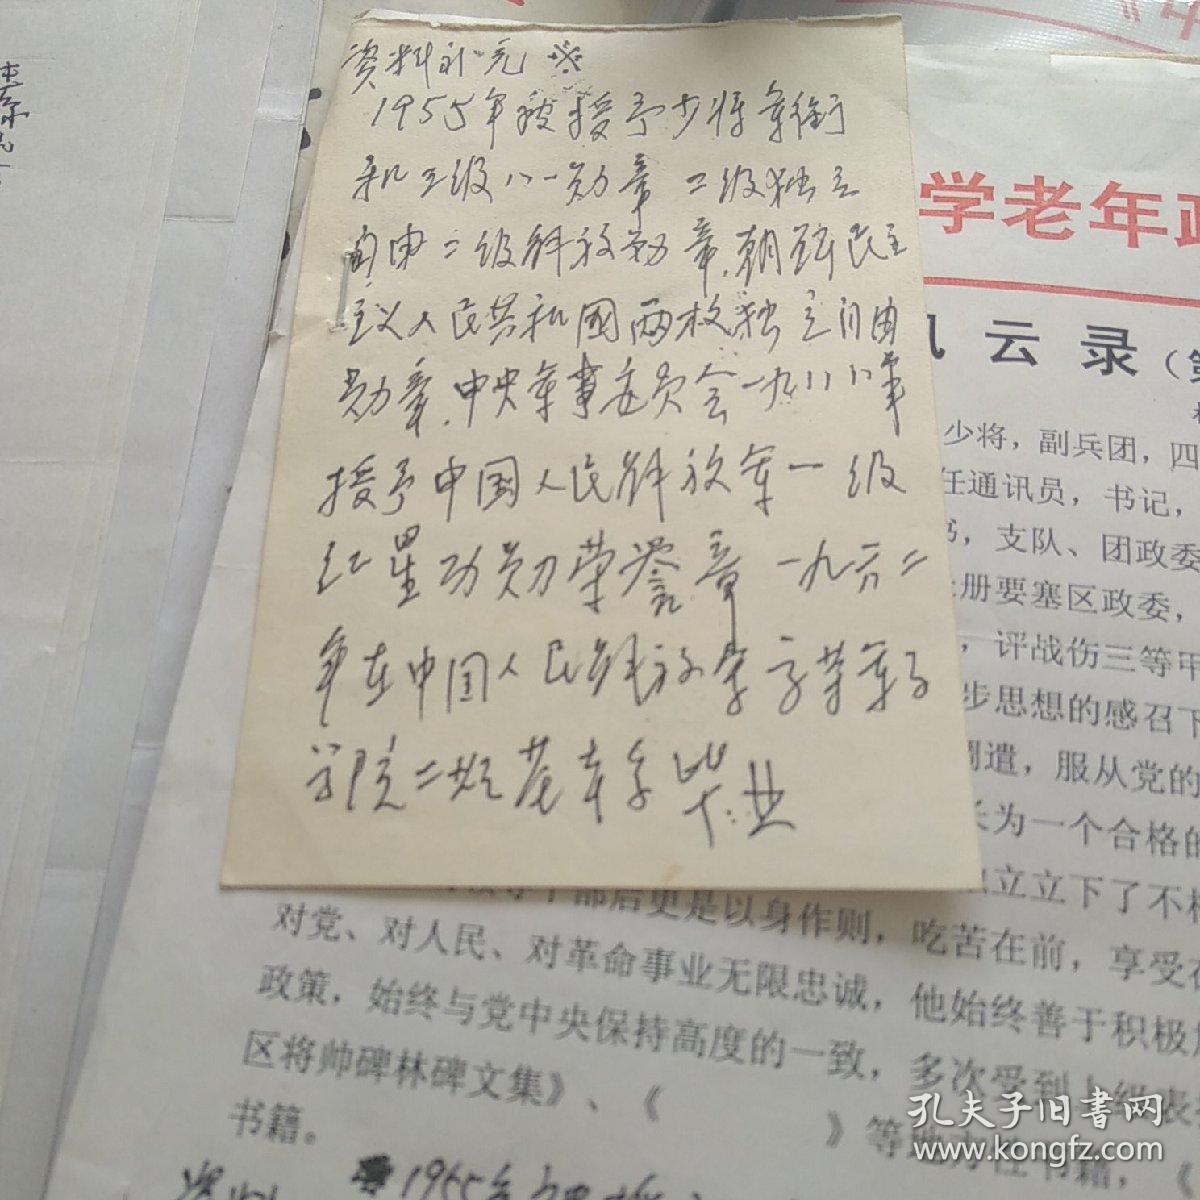 资料补充 ※
1955年被授予少将军衔
和三级八一勋章 二级独立
自由 二级解放勋章,朝鲜民主
主义人民共和國两枚独立自由
勋章,中央军事委员会一九八八年
授予中国人民解放军一级
红星功勋荣誉章 一九六二
年在中国人民解放军高等军事
学院二期基本系毕业
学老年政
风云录(第
少将,副兵团,四
任通讯员,书记,
书,支队、团政委
册要塞区政委,
,评战伤三等甲
步思想的感召下
调遣,服从党的
长为一个合格的
立立下了不
干部后更是以身作则,吃苦在前,享受在
对党、对人民、对革命事业无限忠诚,他始终善于积极
政策,始终与党中央保持高度的一致,多次受到上级表
区将帅碑林碑文集》、《 》等地方性书籍,《
书籍。
资料 1955年被授
孔夫子旧书网
www.kongfz.com